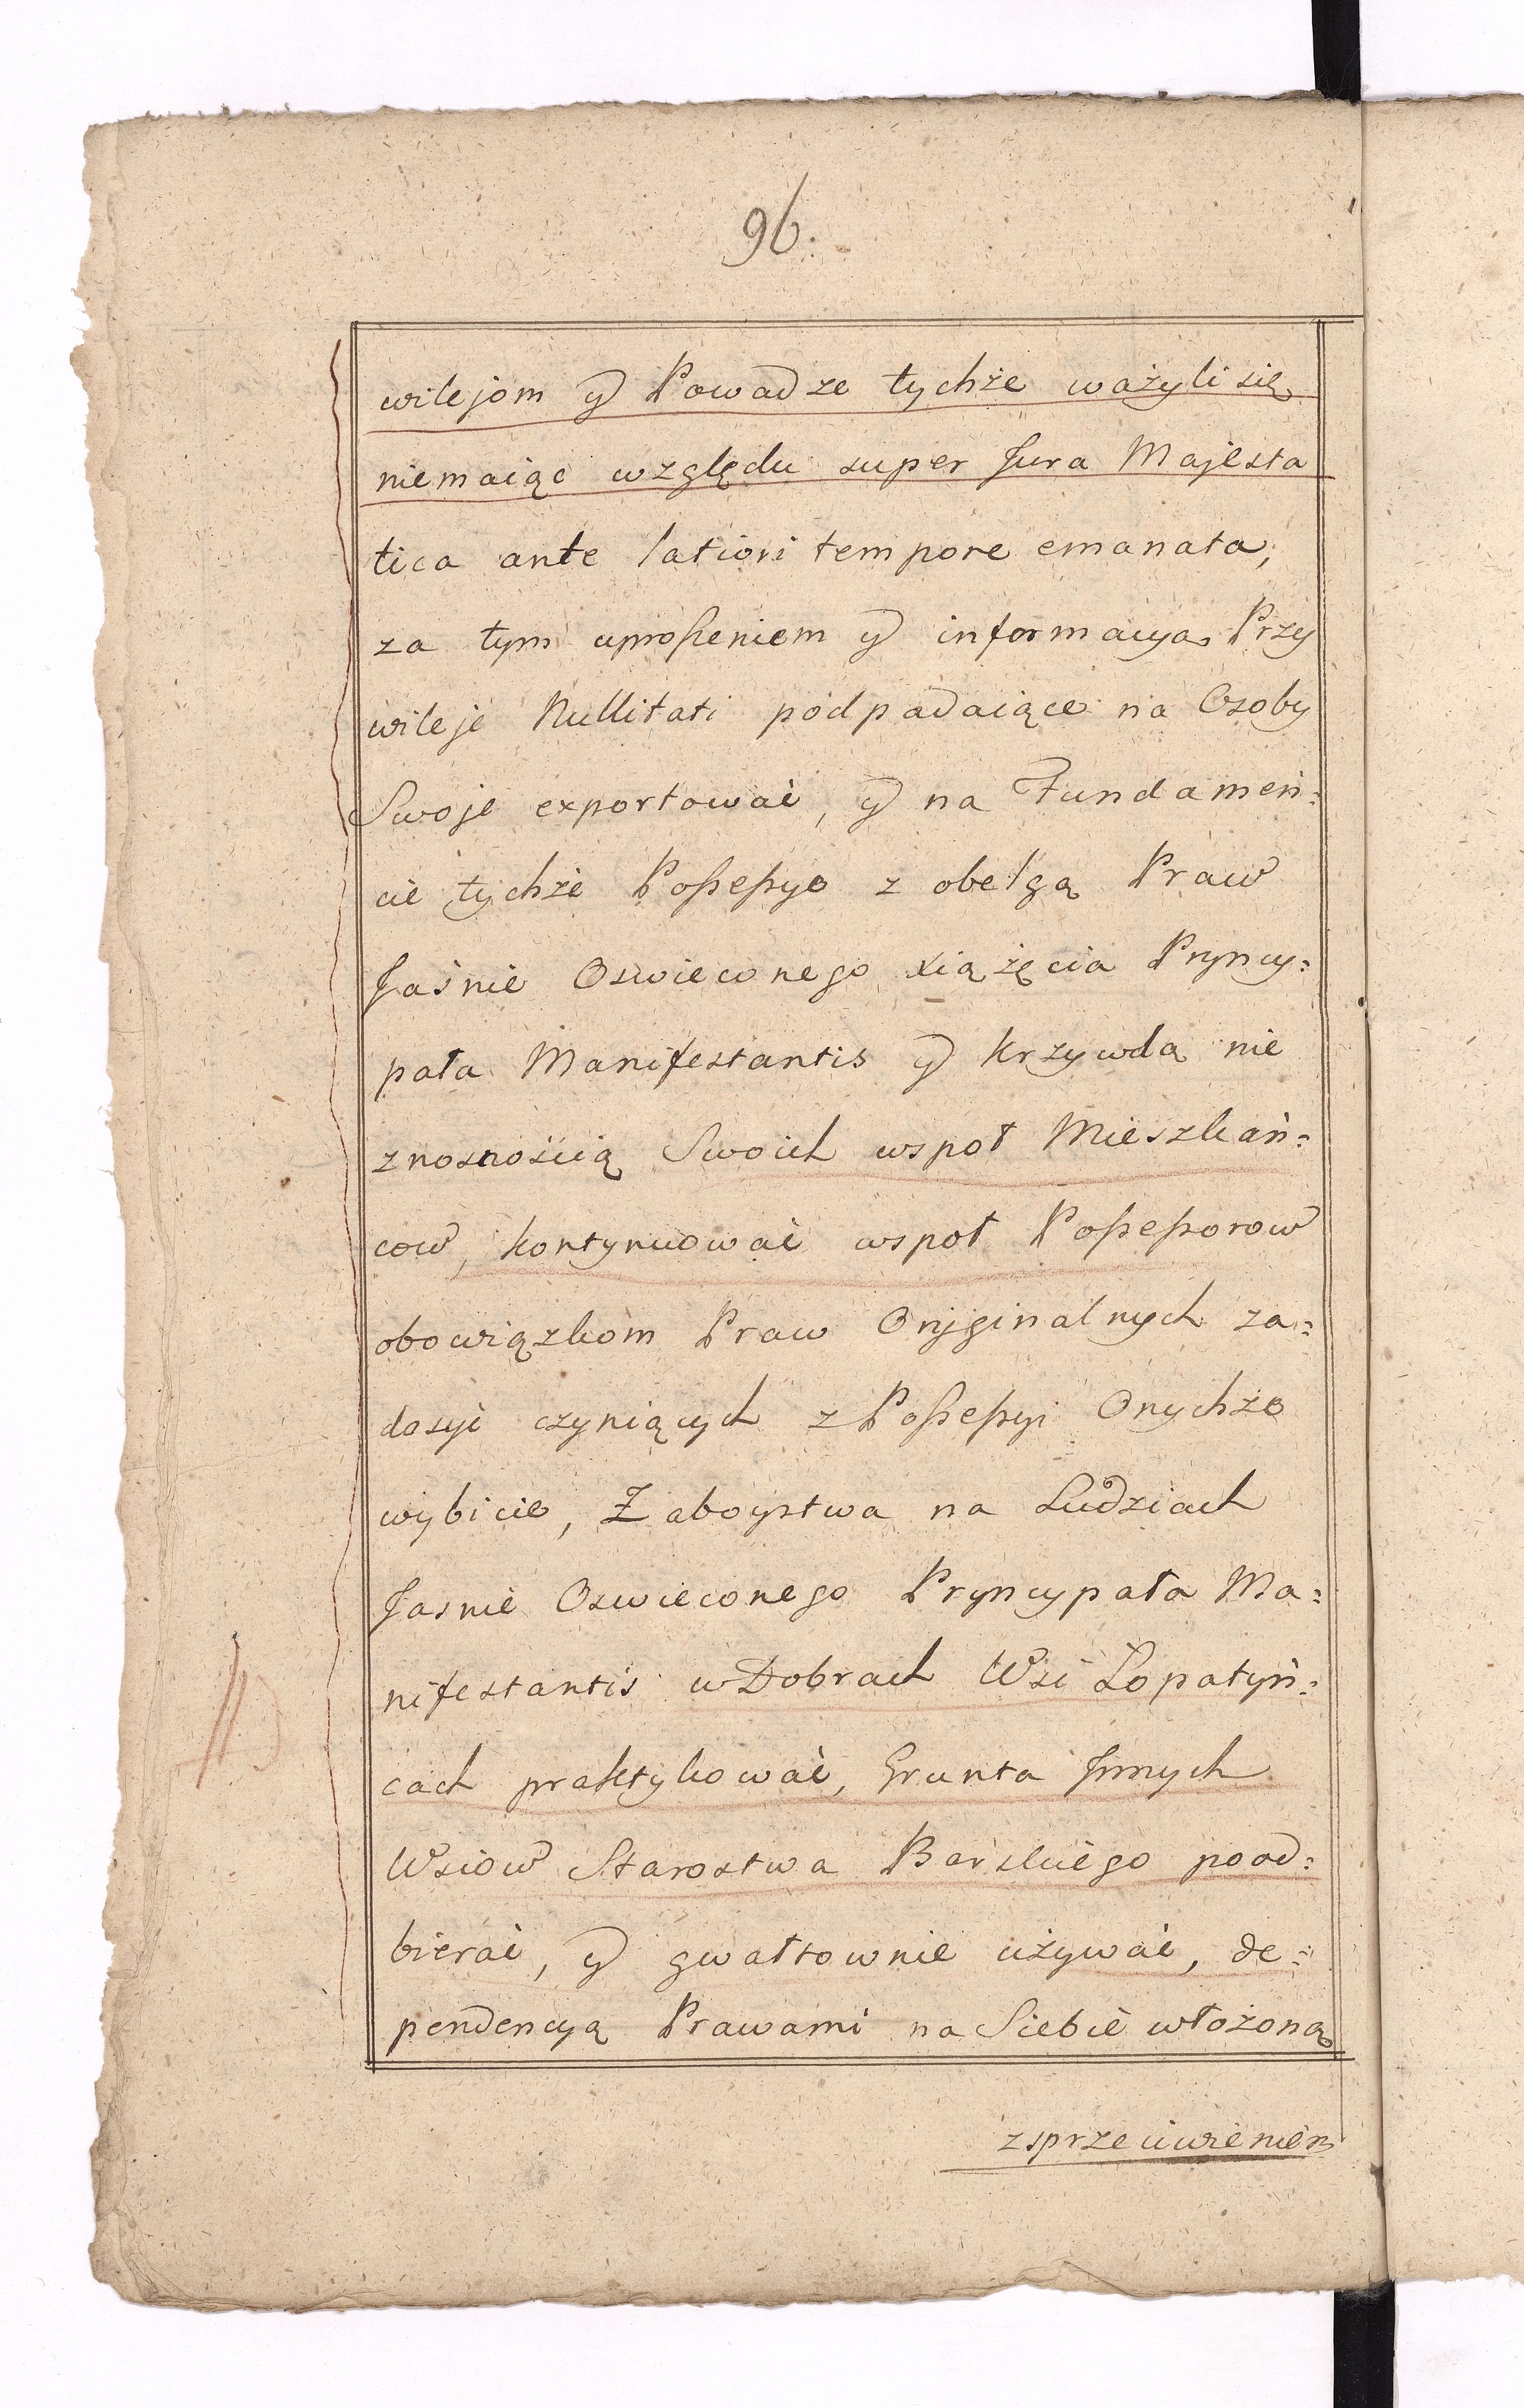 96.
wilejom y Powadze tychże ważyli się
niemaiąc względu super Jura Majesta
tica ante latiori tempore emanata,
za tym uproszeniem y informacyą Przy
wileje Nullitati podpadaiące na Osoby
Swoje exportować, y na Fundamen=
cie tychże Possessye z obelgą Praw
Jaśnie Oswieconego Xiążęcia Pryncy=
pała Manifestantis y krzywdą nie
znosnością Swoich wspoł Mieszkań=
cow, kontynuować wspoł Possessorow
obowiązkom Praw Oryginalnych za=
dosyć czyniących z Possessyi Onychże
wybicie, Zaboystwa na Ludziach
Jasnie Oswieconego Pryncypała Ma=
nifestantis w Dobrach Wsi Łopatyń=
cach praktykować, Grunta Jnnych
Wsiow Starostwa Barskiego pood=
bierać, y gwałtownie używać, de=
pendencyą Prawami na Siebie włożoną
zsprzeciwieniem